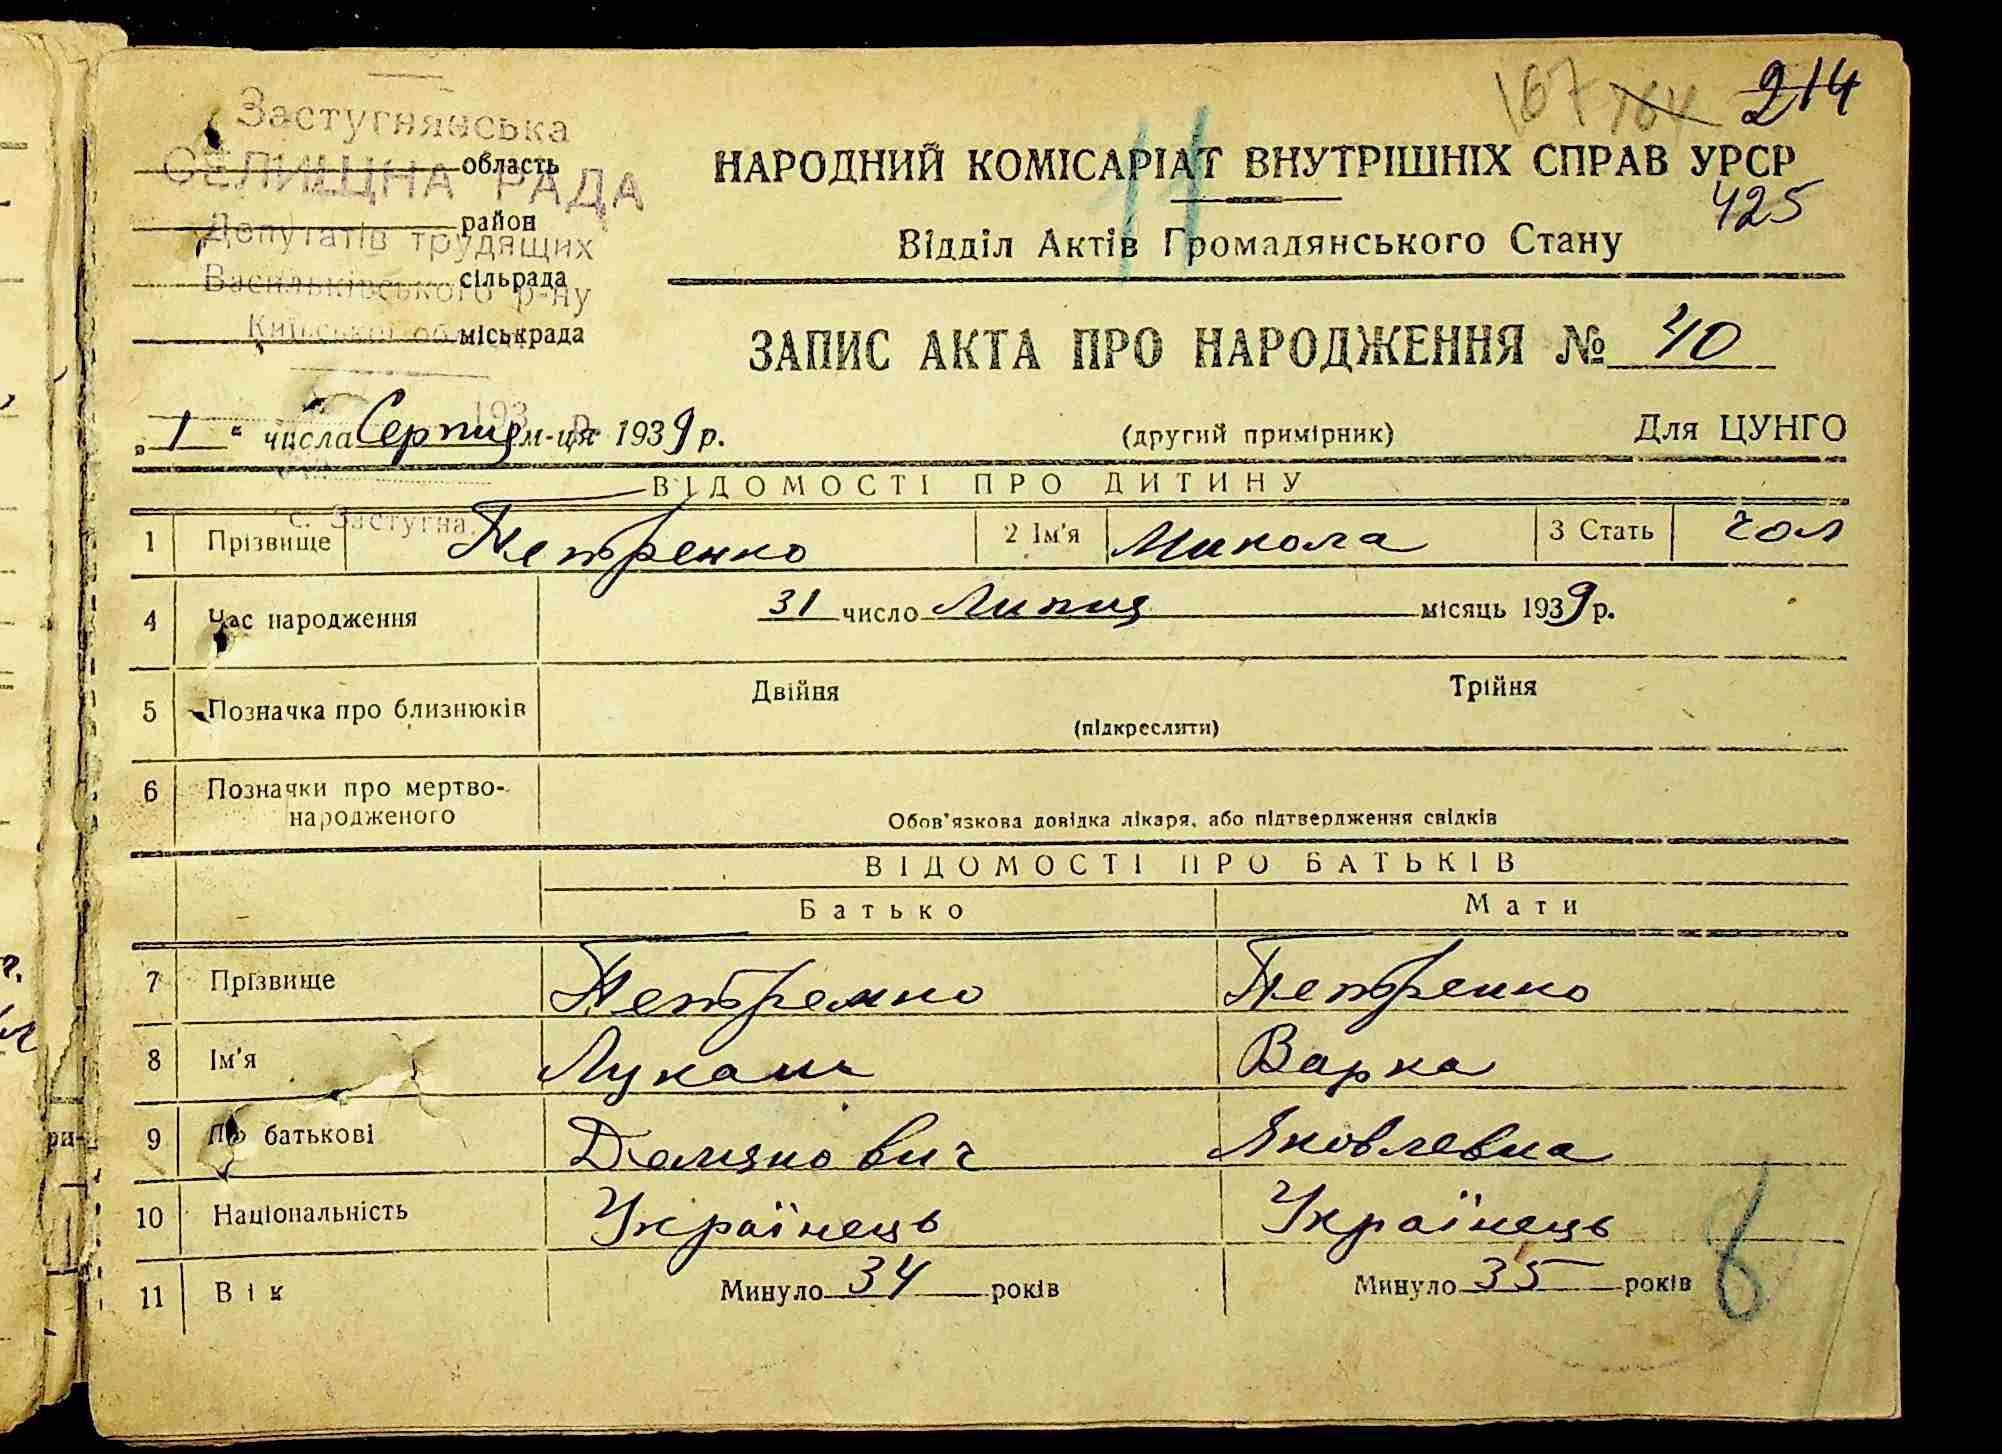 167 164 214
Застугнянська
область
СЕЛИЩНА РАДА
район
Депутатів трудящих
сільрада
Васильківського р-ну
міськрада
Київської обл
НАРОДНИЙ КОМІСАРІАТ ВНУТРІШНІХ СПРАВ УРСР
11
425
Відділ Актів Громадянського Стану
ЗАПИС АКТА ПРО НАРОДЖЕННЯ № 40
193 р.
„1“ числа Серпня м-ця 1939 р. (другий примірник) Для ЦУНГО
ВІДОМОСТІ ПРО ДИТИНУ
с. Застугна.
1 Прізвище Петренко 2 Ім'я Микола 3 Стать чол
4 Час народження 31 число Липня місяць 1939 р.
5 Позначка про близнюків Двійня Трійня
(підкреслити)
6 Позначки про мертво-
народженого Обов'язкова довідка лікаря, або підтвердження свідків
ВІДОМОСТІ ПРО БАТЬКІВ
Батько Мати
7 Прізвище Петренко Петренко
8 Ім'я Лукаш Варка
9 По батькові Демянович Яковлевна
10 Національність Українець Українець
11 Вік Минуло 34 років Минуло 35 років
8
ри-